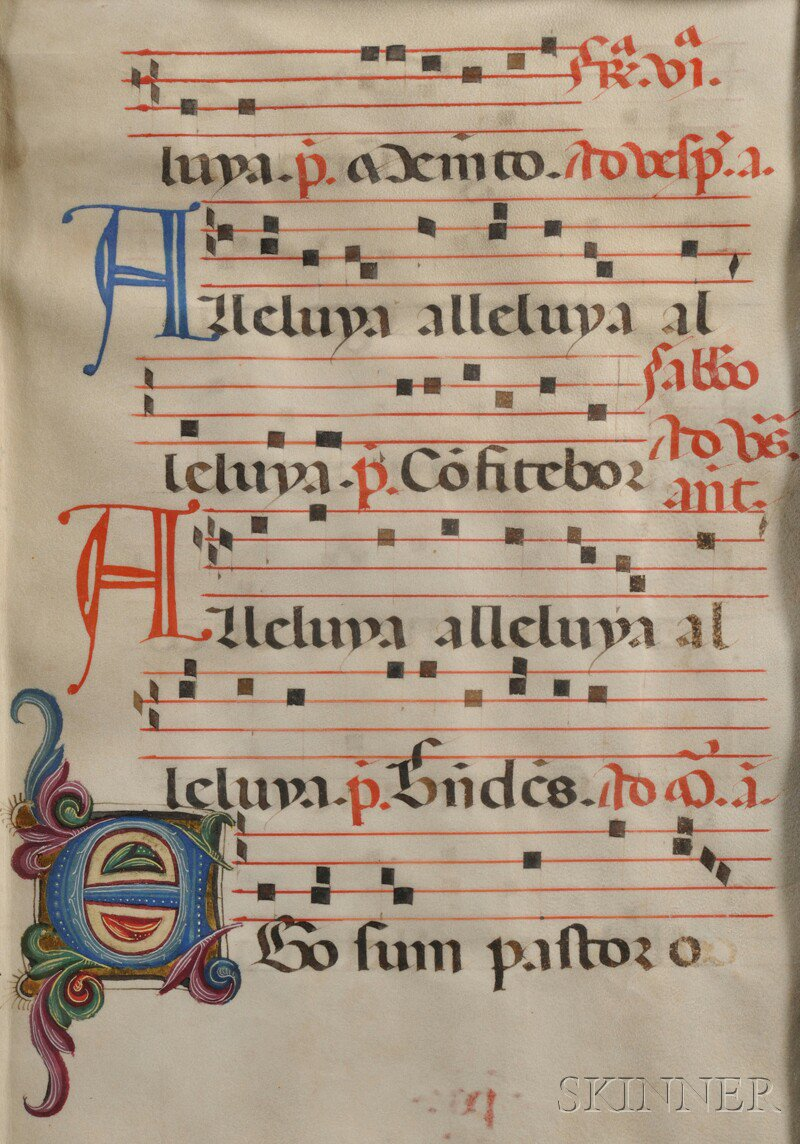 Fr̃a. vi.
luya. p̃. Mem̃to. Ad vesp̃. a.
Alleluya alleluya al
Sabbo
leluya. p̃. Cõfitebor Ad vs̃.
añt.
Alleluya alleluya al
leluya. p̃. Bñdc̃s. Ad M̃. ã.
Ego sum pastor o
SKINNER